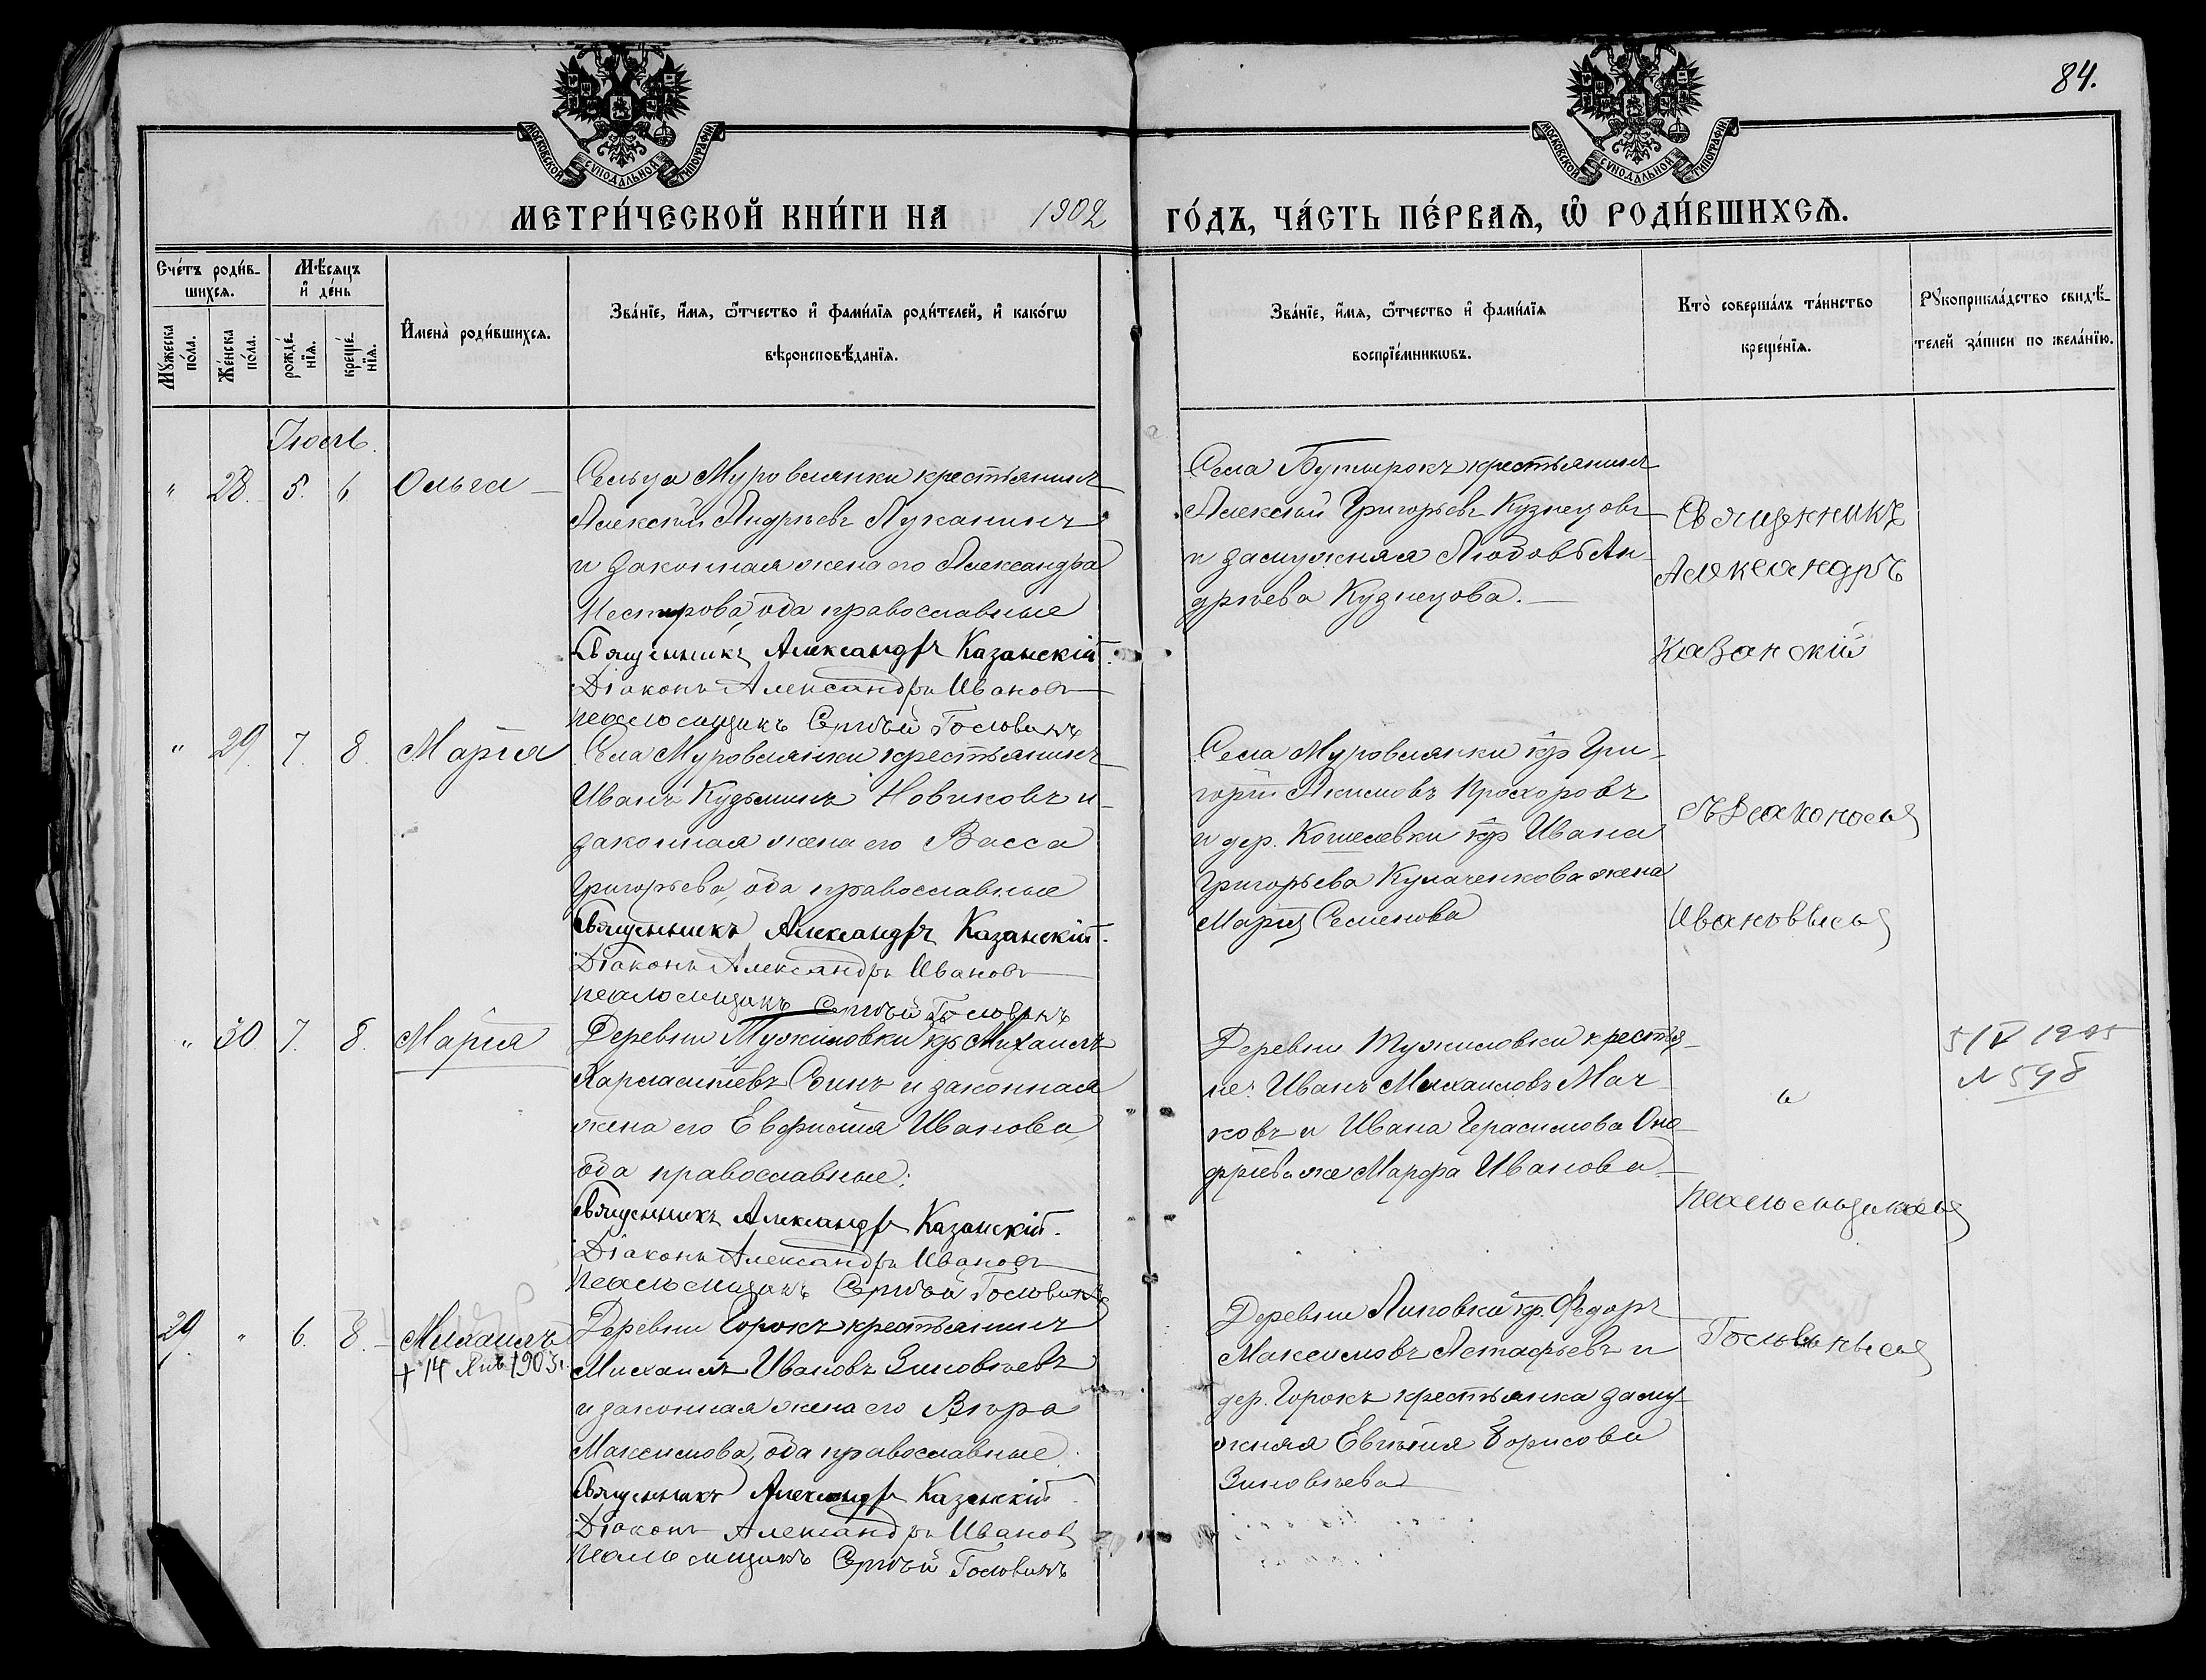 84.
МОСКОВСКОЙ СѴНОДАЛЬНОЙ ТИПОГРАФІИ
МОСКОВСКОЙ СѴНОДАЛЬНОЙ ТИПОГРАФІИ
МЕТРИ́ЧЕСКОЙ КНИ́ГИ НА 1902 ГО́ДЪ, ЧА́СТЬ ПЕ́РВАѦ, Ѿ РОДИ́ВШИХСѦ.
Сче́тъ роди́в-
шихсѧ.
Мꙋ́жеска по́ла.
Же́нска по́ла.
Мѣ́сѧцъ
и҆ де́нь
рожде́-
нїѧ.
креще́-
нїѧ.
И҆мена̀ роди́вшихсѧ.
Зва́нїе, и҆́мѧ, ѻ҆́тчество и҆ фами́лїѧ роди́телей, и҆ како́гѡ
вѣроисповѣ́данїѧ.
Зва́нїе, и҆́мѧ, ѻ҆́тчество и҆ фами́лїѧ
воспрїе́мникѡвъ.
Кто̀ соверша́лъ та́инство
креще́нїѧ.
Рꙋкоприкла́дство свидѣ́-
телей за́писи по жела́нїю.
Іюль.
" 28. 5. 6 Ольга
Сельца Муровлянки крестьянинъ
Алексѣй Андреевъ Луканинъ
и законная жена его Александра
Нестерова, оба православные
Священникъ Александръ Казанскій.
Діаконъ Александръ Ивановъ
псаломщикъ Сергѣй Головинъ
Села Бутырокъ крестьянинъ
Алексѣй Григорьевъ Кузнецовъ
и замужняя Любовь Ан-
дреева Кузнецова.
Священникъ
Александръ
Казанскій
" 29. 7. 8. Марія
Села Муровлянки крестьянинъ
Иванъ Кузьминъ Новиковъ и
законная жена его Васса
Григорьева, оба православные
Священникъ Александръ Казанскій.
Діаконъ Александръ Ивановъ
псаломщикъ Сергѣй Головинъ
Села Муровлянки кр Гри-
горій Акимовъ Прохоровъ
и дер. Кошелевки кр Ивана
Григорьева Кулаченкова жена
Марія Семенова
съ Діакономъ
Ивановымъ
" 30 7. 8. Марія
Деревни Тужиловки кр Михаилъ
Харлампіевъ и законная
жена его Евфимія Иванова,
оба православные:
Священникъ Александръ Казанскій.
Діаконъ Александръ Ивановъ
псаломщикъ Сергѣй Головинъ
Деревни Тужиловки крестья-
не: Иванъ Михаиловъ Мач-
ковъ и Ивана Герасимова Оно-
фріева же Марфа Иванова.
и
псаломщикомъ
Головинымъ
N 598
29. " 6. 8. Михаилъ
+ 14 Янв. 1903 г.
Деревни Горокъ крестьянинъ
Михаилъ Ивановъ Зиновьевъ
и законная жена его Вѣра
Максимова, оба православные.
Священникъ Александръ Казанскій
Діаконъ Александръ Ивановъ
псаломщикъ Сергѣй Головинъ
Деревни Липовки кр. Федоръ
Максимовъ Астафьевъ и
дер. Горокъ крестьянка заму-
жняя Евгенія Борисова
Зиновьева